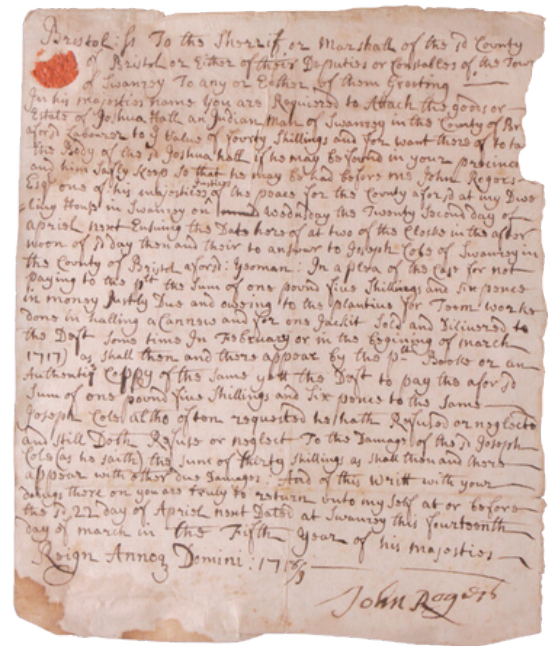 Bristol: ss To the Sherrif, or Marshall of the sd County
of Bristol or Either of their Deputies or Constables of the Town
of Swanzey To any or Eather of them Greeting
In his majesties name you are Required to Attach the goods or
Estate of Joshua Hall an Indian Man of Swanzey in the County of Br
aforsd Labourer to ye Value of fourty Shillings and for want there of to ta
the Body of the sd Joshua hall if he may be found in your precinct
and him Safly Keep So that he may be had before me John Rogers
Esqr one of his majesties Justices of the peace for the County aforsd at my Dwe
ling House in Swanzey on wedensday the Twenty Second day of
Apriel next Ensuing the Date here of at two of the Clocke in the after
noon of sd day then and their to answer to Joseph Cole of Swanzey in
the County of Bristol aforsd: yeoman: In a plea of the Case for not
paying to the plt the Sum of one pound five Shillings and Six pence
in money Justly Due and oweing to the plantive for Teem worke
done in halling a Cannew and for one Jackit Sold and Dilivered to
the Deft Some time In February or in the begining of march
1717) as shall then and there appear by the plts Booke or an
Authentis Coppy of the Same yett the Deft to pay the aforsd
Sum of one pound five Shillings and Six pence to the Same
Joseph Cole altho often requested he hath Refused or neglecte
and still Doth Refuse or neglect To the Damage of the sd Joseph
Cole (as he saith) the Sume of thirty Shillings as Shall then and there
appear with other due Damages. And of this Writt with your
doings there on you are truly to return unto my Self at or before
the sd 22 day of Apriel next Dated at Swanzey this fourteenth
day of march in the Fifth Year of his majesties
Reign Annoq Domini: 1718/9
John Rogers